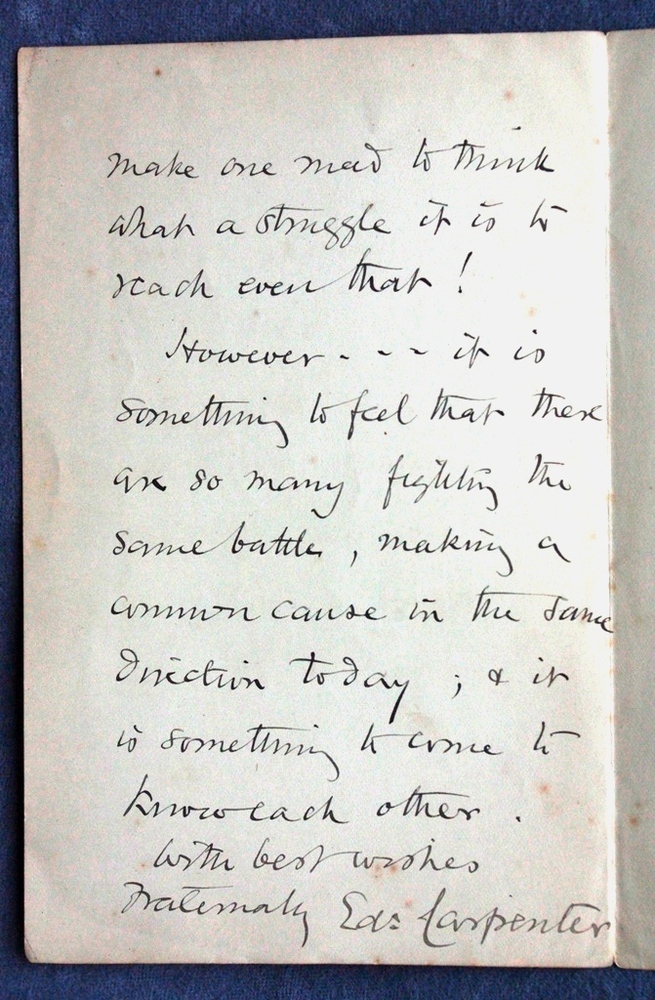 make one mad to think
what a struggle it is to
reach even that !
However - - - it is
something to feel that there
are so many fighting the
same battle, making a
common cause in the same
direction today ; & it
is something to come to
know each other .
With best wishes
Fraternally Edᵈ Carpenter